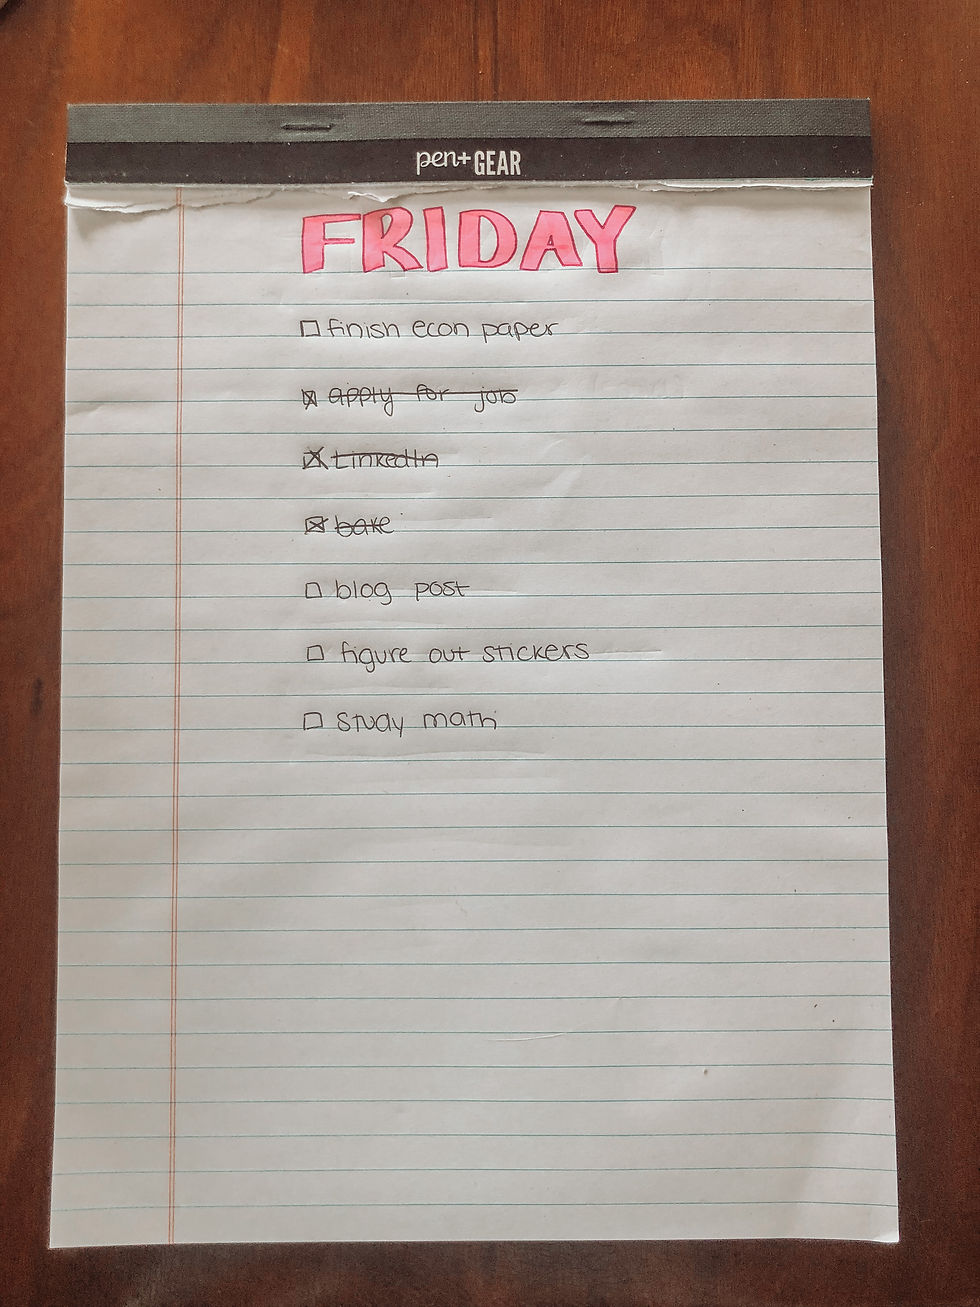 pen+GEAR
FRIDAY
finish econ paper
apply for job
LinkedIn
bake
blog post
figure out stickers
study math